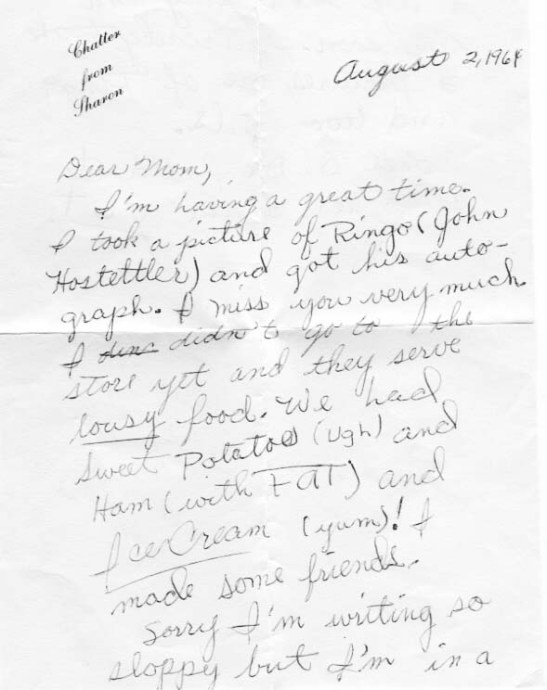 Chatter
from
Sharon
August 2, 1964
Dear Mom,
I'm having a great time.
I took a picture of Ringo (John
Hostettler) and got his auto-
graph. I miss you very much.
I didn't go to the
store yet and they serve
lousy food. We had
Sweet Potatoes (ugh) and
Ham (with FAT) and
Ice Cream (yum)! I
made some friends.
Sorry I'm writing so
sloppy but I'm in a